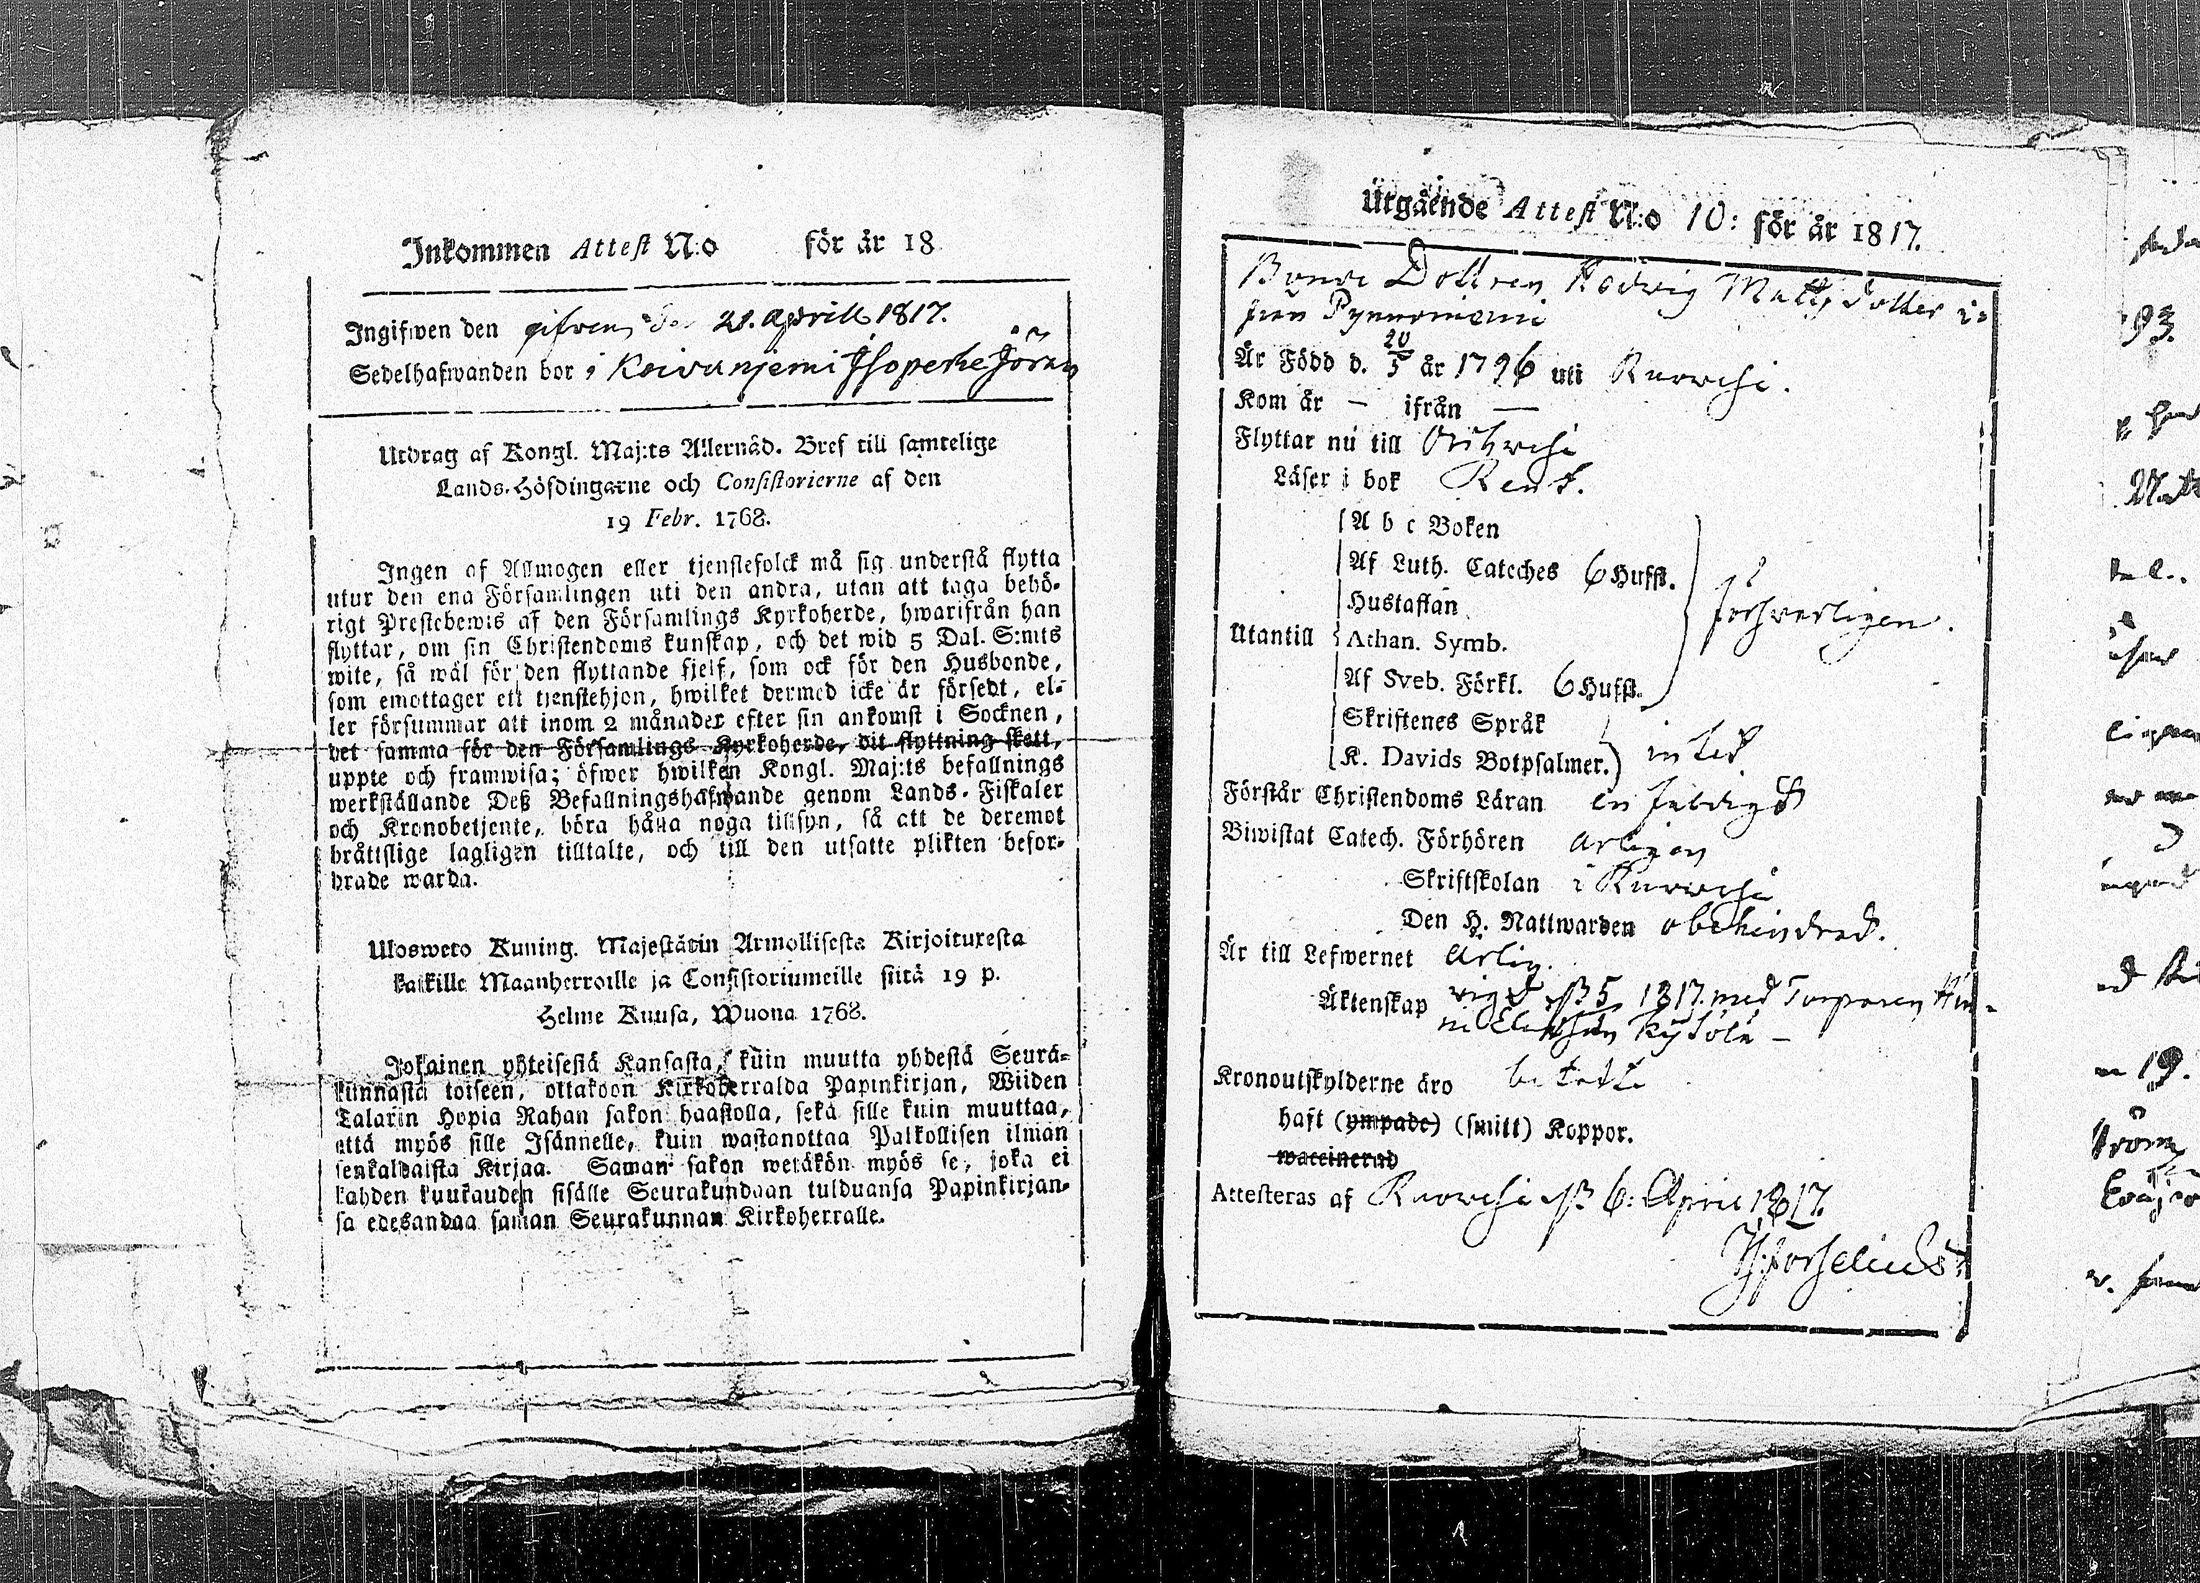 Inkommen Attest N:o för år 18
Ingifwen den gifven den 21. Aprill 1817.
Sedelhafwanden bor i Koivunjemi Isoperhe Jöran
Utdrag af Kongl. Maj:ts Allernåd. Bref till samtelige
Lands-Höfdingarne och Consistorierne af den
19 Febr. 1768.
Ingen af Allmogen eller tjenstefolck må sig understå flytta
utur den ena Församlingen uti den andra, utan att taga behö-
rigt Prestebewis af den Församlings Kyrkoherde, hwarifrån han
flyttar, om sin Christendoms kunskap, och det wid 5 Dal. S:mts
wite, så wäl för den flyttande sjelf, som ock för den Husbonde,
som emottager ett tjenstehjon, hwilket dermed icke är försedt, el-
ler försummar att inom 2 månader efter sin ankomst i Socknen,
det samma för den Församlings Kyrkoherde, dit flyttning skett,
uppte och framwisa; öfwer hwilken Kongl. Maj:ts befallnings
werkställande Deß Befallningshafwande genom Lands-Fiskaler
och Kronobetjente, böra hålla noga tillsyn, så att de deremot
bråttslige lagligen tilltalte, och till den utsatte plikten befor-
drade warda.
Ulosweto Kuning. Majestätin Armollisesta Kirjoituxesta
kaikille Maanherroille ja Consistoriumeille siitä 19 p.
Helme Kuusa, Wuona 1768.
Jokainen yhteisestä Kansasta, kuin muutta yhdestä Seura-
kunnasta toiseen, ottakoon Kirkoherralda Papinkirjan, Wiiden
Talarin Hopia Rahan sakon haastolla, sekä sille kuin muuttaa,
että myös sille Isännelle, kuin wastanottaa Palkollisen ilman
senkaldaista Kirjaa. Saman sakon wetäkön myös se, joka ei
kahden kuukauden sisälle Seurakundaan tulduansa Papinkirjan-
sa edesandaa saman Seurakunnan Kirkoherralle.
Utgående Attest N:o 10: för år 1817.
Bonde Dottren Hedvig Matts dotter i-
från Pynnoniemi
Är Född d. 20/5 år 1796 uti Kuowesi.
Kom år — ifrån —
Flyttar nu till Orihwesi
Läser i bok Rent.
A b c Boken
Af Luth. Cateches 6 Hufst.
Hustaflan
Utantill Athan. Symb. försvarligen.
Af Sveb. Förkl. 6 Hufst.
Skriftenes Språk
K. Davids Botpsalmer. intet
Förstår Christendoms Läran enfaldigt
Biwistat Catech. Förhören årligen
Skriftskolan i Kuowesi
Den H. Nattwarden obehindrad.
Är till Lefwernet ärlig.
Äktenskap vigd 5 1817. med Torparen
Kronoutskylderne äro betalte
haft (ympade) (smitt) Koppor.
waccinerad
Attesteras af Kuowesi 6: April 1817.